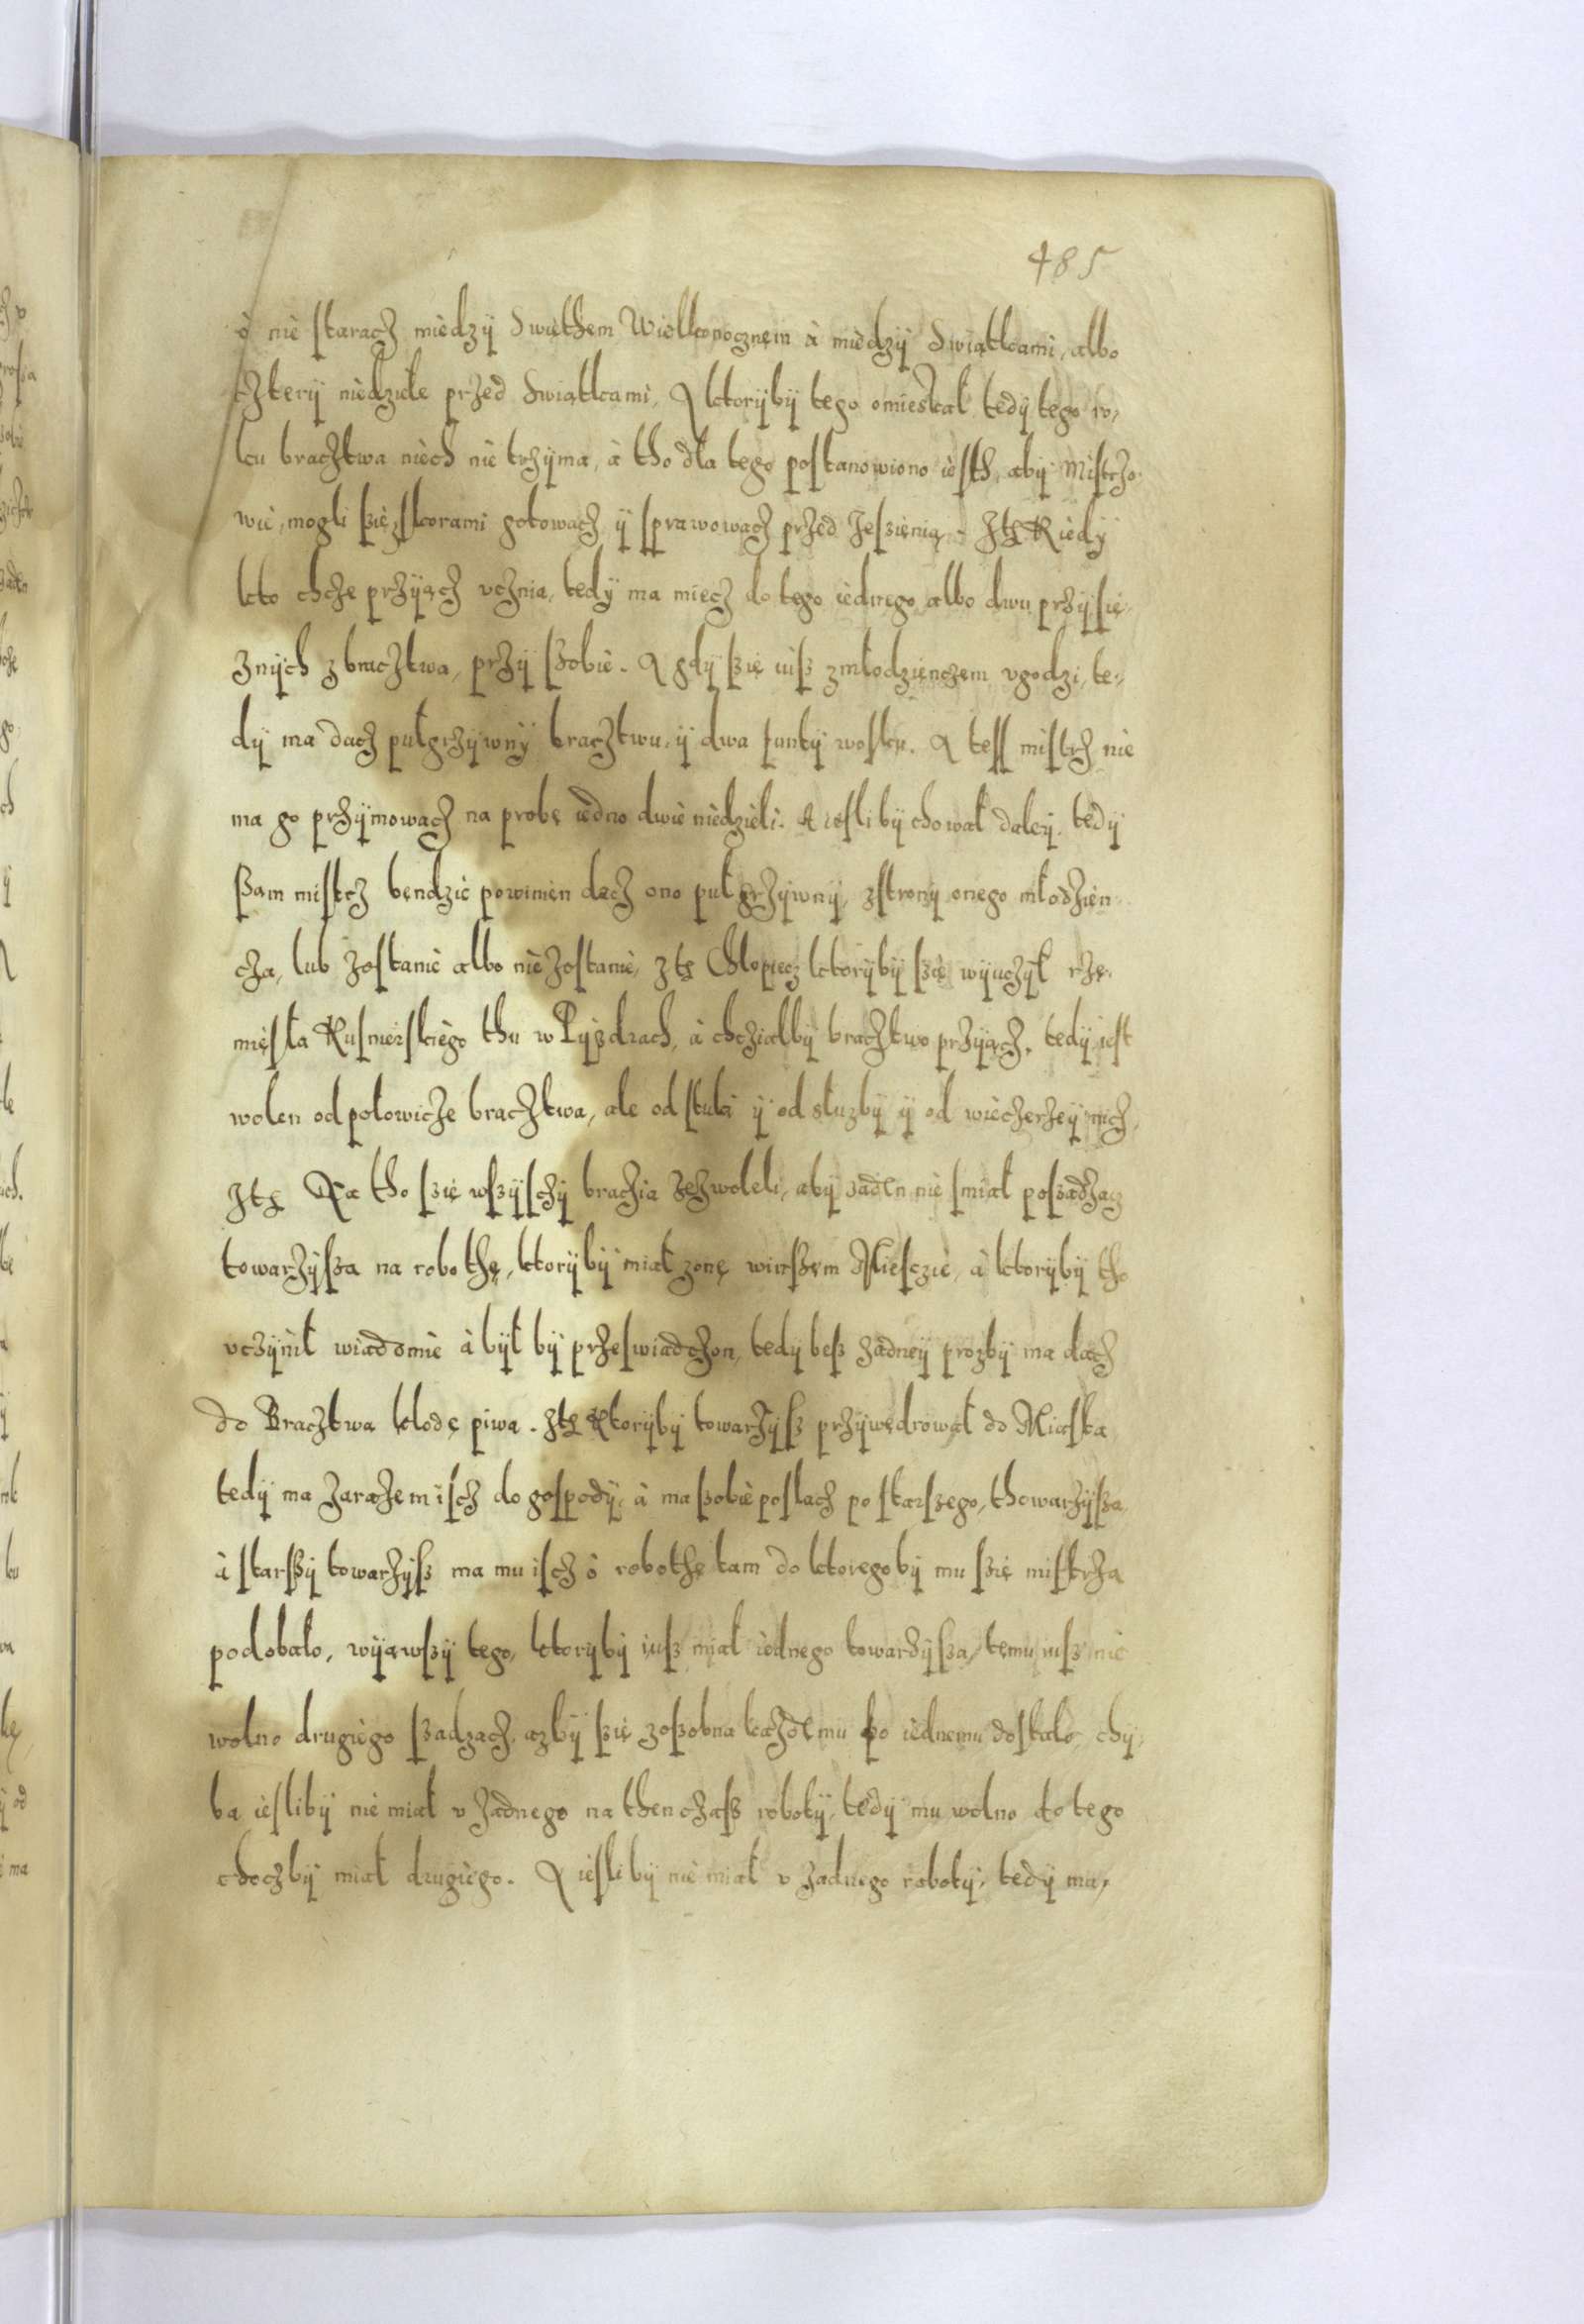 485
o nie staracz miedzÿ Swiethem Wielkonocznem à miedzÿ Swiątkami, albo
cżterÿ niedziele przed Swiątkami, A ktorÿbÿ tego omieskał tedÿ tego ro,
ku braczkwa niech nie trzÿma, à tho dla tego postanowiono iesth, abÿ Mistrzo-
wie, mogli sie skorami gotowacz ÿ sprawowacz przed Jesienią. Jtē Kiedÿ
kto chcze przÿiącz vcznia, tedÿ ma miecz do tego iednego albo dwu przÿsię-
znÿch z bracztwa, przÿ sobie. A gdÿ sie iuss zmłodzienczem vgodzi, te-
dÿ ma dacz pułgrzÿwnÿ bracztwu, ÿ dwa funtÿ wosku. A tess mistrz nie
ma go przÿmowacz na probę iedno dwie niedzieli. A iesli bÿ chował daleÿ, tedÿ
sam mistrz bendzie powinien dacz ono pułgrzÿwnÿ, zstronÿ onego młodzien-
cza, lub zostanie albo nie zostanie, Jtē Chlopiecz ktorÿbÿ sie wÿuczÿł rze-
miesła Kusnierskiego thu w Pÿzdrach, à chcziałbÿ bracztwo przÿiącz, tedÿ iest
wolen od połowicze bracztwa, ale od stuki ÿ od słuzbÿ ÿ od wieczerzeÿ nicz,
Jtē Na tho sie wssÿsczÿ braczia zezwoleli, abÿ zaden nie smiał posadzacz
towarzÿssa na robothę, ktorÿbÿ miał zonę winssem Miesczie, à ktorÿbÿ tho
vczÿnił wiadomie à bÿł bÿ przeswiadczon, tedÿ bess zadneÿ prozbÿ ma dacz
do Bracztwa kłodę piwa. Jtē Ktorÿbÿ towarzÿss przÿwędrował do Miasta
tedÿ ma zarazem iscz do gospodÿ, à ma sobie poslacz po starszego, thowarzÿssa,
à starssÿ towarzÿss ma mu iscz o robothę tam do ktoregobÿ mu sie mistrza
podobało, wÿiąwssÿ tego, ktorÿbÿ iuss miał iednego towarzÿssa, temu iuss nie
wolno drugiego ssadzacz, azbÿ sie zosobna kazdemu po iednemu dostało, chÿ-
ba iesli bÿ nie miał v zadnego na then czass robotÿ, tedÿ mu wolno do tego
choczbÿ miał drugiego. A iesli bÿ nie miał v zadnego robotÿ, tedÿ mu,